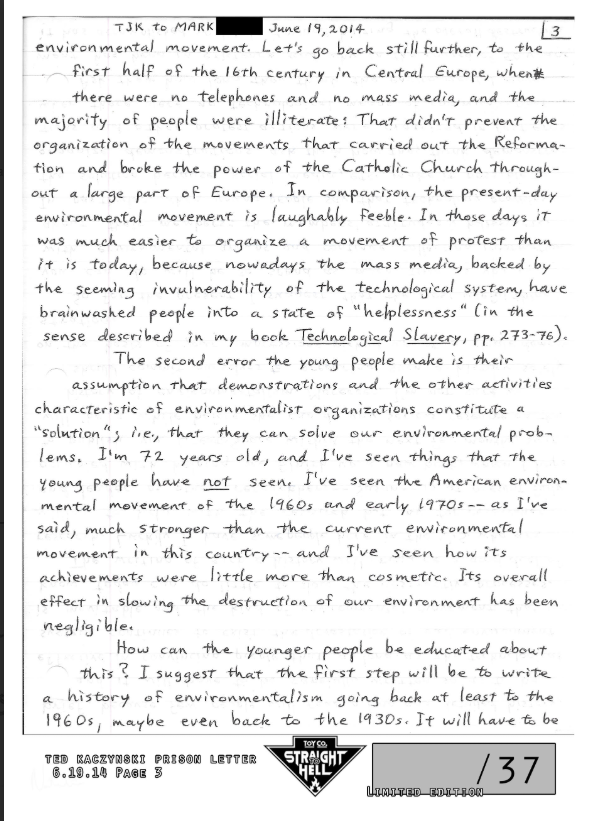 TJK to MARK June 19, 2014 3
environmental movement. Let's go back still further, to the
first half of the 16th century in Central Europe, when
there were no telephones and no mass media, and the
majority of people were illiterate! That didn't prevent the
organization of the movements that carried out the Reforma-
tion and broke the power of the Catholic Church through-
out a large part of Europe. In comparison, the present-day
environmental movement is laughably feeble. In those days it
was much easier to organize a movement of protest than
it is today, because nowadays the mass media, backed by
the seeming invulnerability of the technological system, have
brainwashed people into a state of "helplessness" (in the
sense described in my book Technological Slavery, pp. 273-76).
The second error the young people make is their
assumption that demonstrations and the other activities
characteristic of environmentalist organizations constitute a
"solution"; i.e., that they can solve our environmental prob-
lems. I'm 72 years old, and I've seen things that the
young people have not seen. I've seen the American environ-
mental movement of the 1960s and early 1970s -- as I've
said, much stronger than the current environmental
movement in this country -- and I've seen how its
achievements were little more than cosmetic. Its overall
effect in slowing the destruction of our environment has been
negligible.
How can the younger people be educated about
this? I suggest that the first step will be to write
a history of environmentalism going back at least to the
1960s, maybe even back to the 1930s. It will have to be
TED KACZYNSKI PRISON LETTER
6.19.14 PAGE 3
TOY CO.
STRAIGHT
TO
HELL
/37
LIMITED EDITION